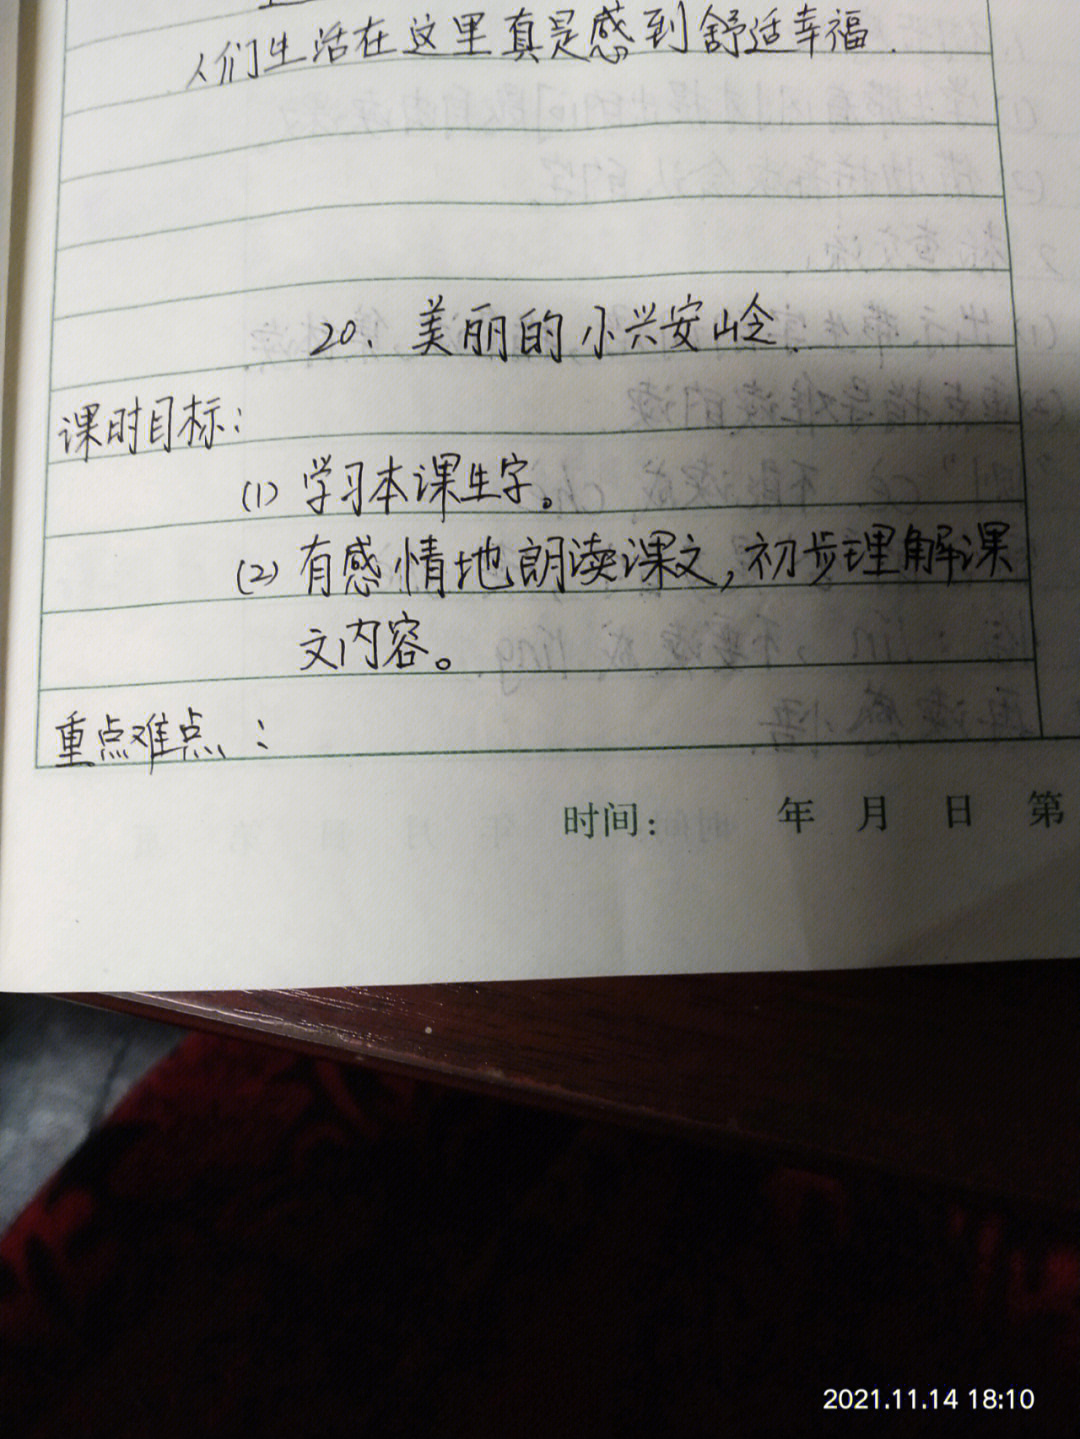 人们生活在这里真是感到舒适幸福.
20. 美丽的小兴安岭.
课时目标:
(1) 学习本课生字。
(2) 有感情地朗读课文,初步理解课
文内容。
重点难点:
时间: 年 月 日 第
2021.11.14 18:10